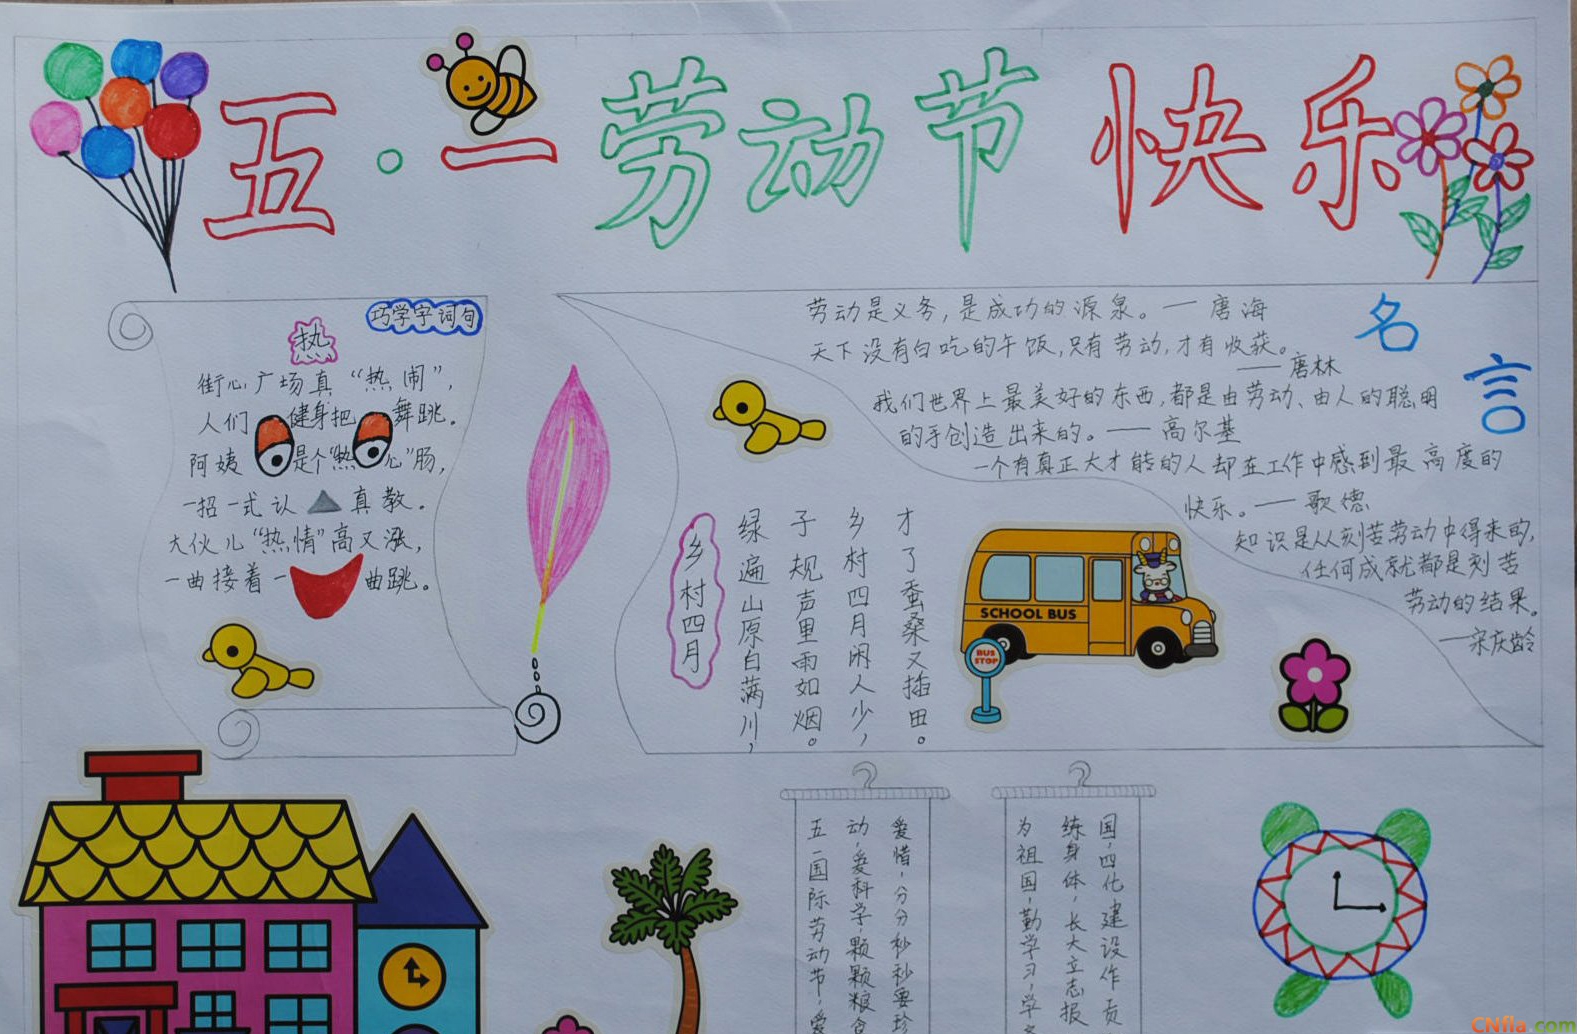 五·一劳动节快乐
巧学字词句
热
街心广场真“热闹”，
人们健身把舞跳。
阿姨是个“热心”肠，
一招一式认真教。
大伙儿“热情”高又涨，
一曲接着一曲跳。
名言
劳动是义务，是成功的源泉。——唐海
天下没有白吃的午饭，只有劳动，才有收获。
——唐林
我们世界上最美好的东西，都是由劳动、由人的聪明
的手创造出来的。——高尔基
一个有真正大才能的人却在工作中感到最高度的
快乐。——歌德
知识是从刻苦劳动中得来的，
任何成就都是刻苦
劳动的结果。
——宋庆龄
乡村四月
绿遍山原白满川，
子规声里雨如烟。
乡村四月闲人少，
才了蚕桑又插田。
SCHOOL BUS
BUS
STOP
五一国际劳动节，爱
动，爱科学，颗颗粮食
爱惜，分分秒秒要珍
为祖国，勤学习，学
练身体，长大立志报
国，四化建设作贡
CNfla.com